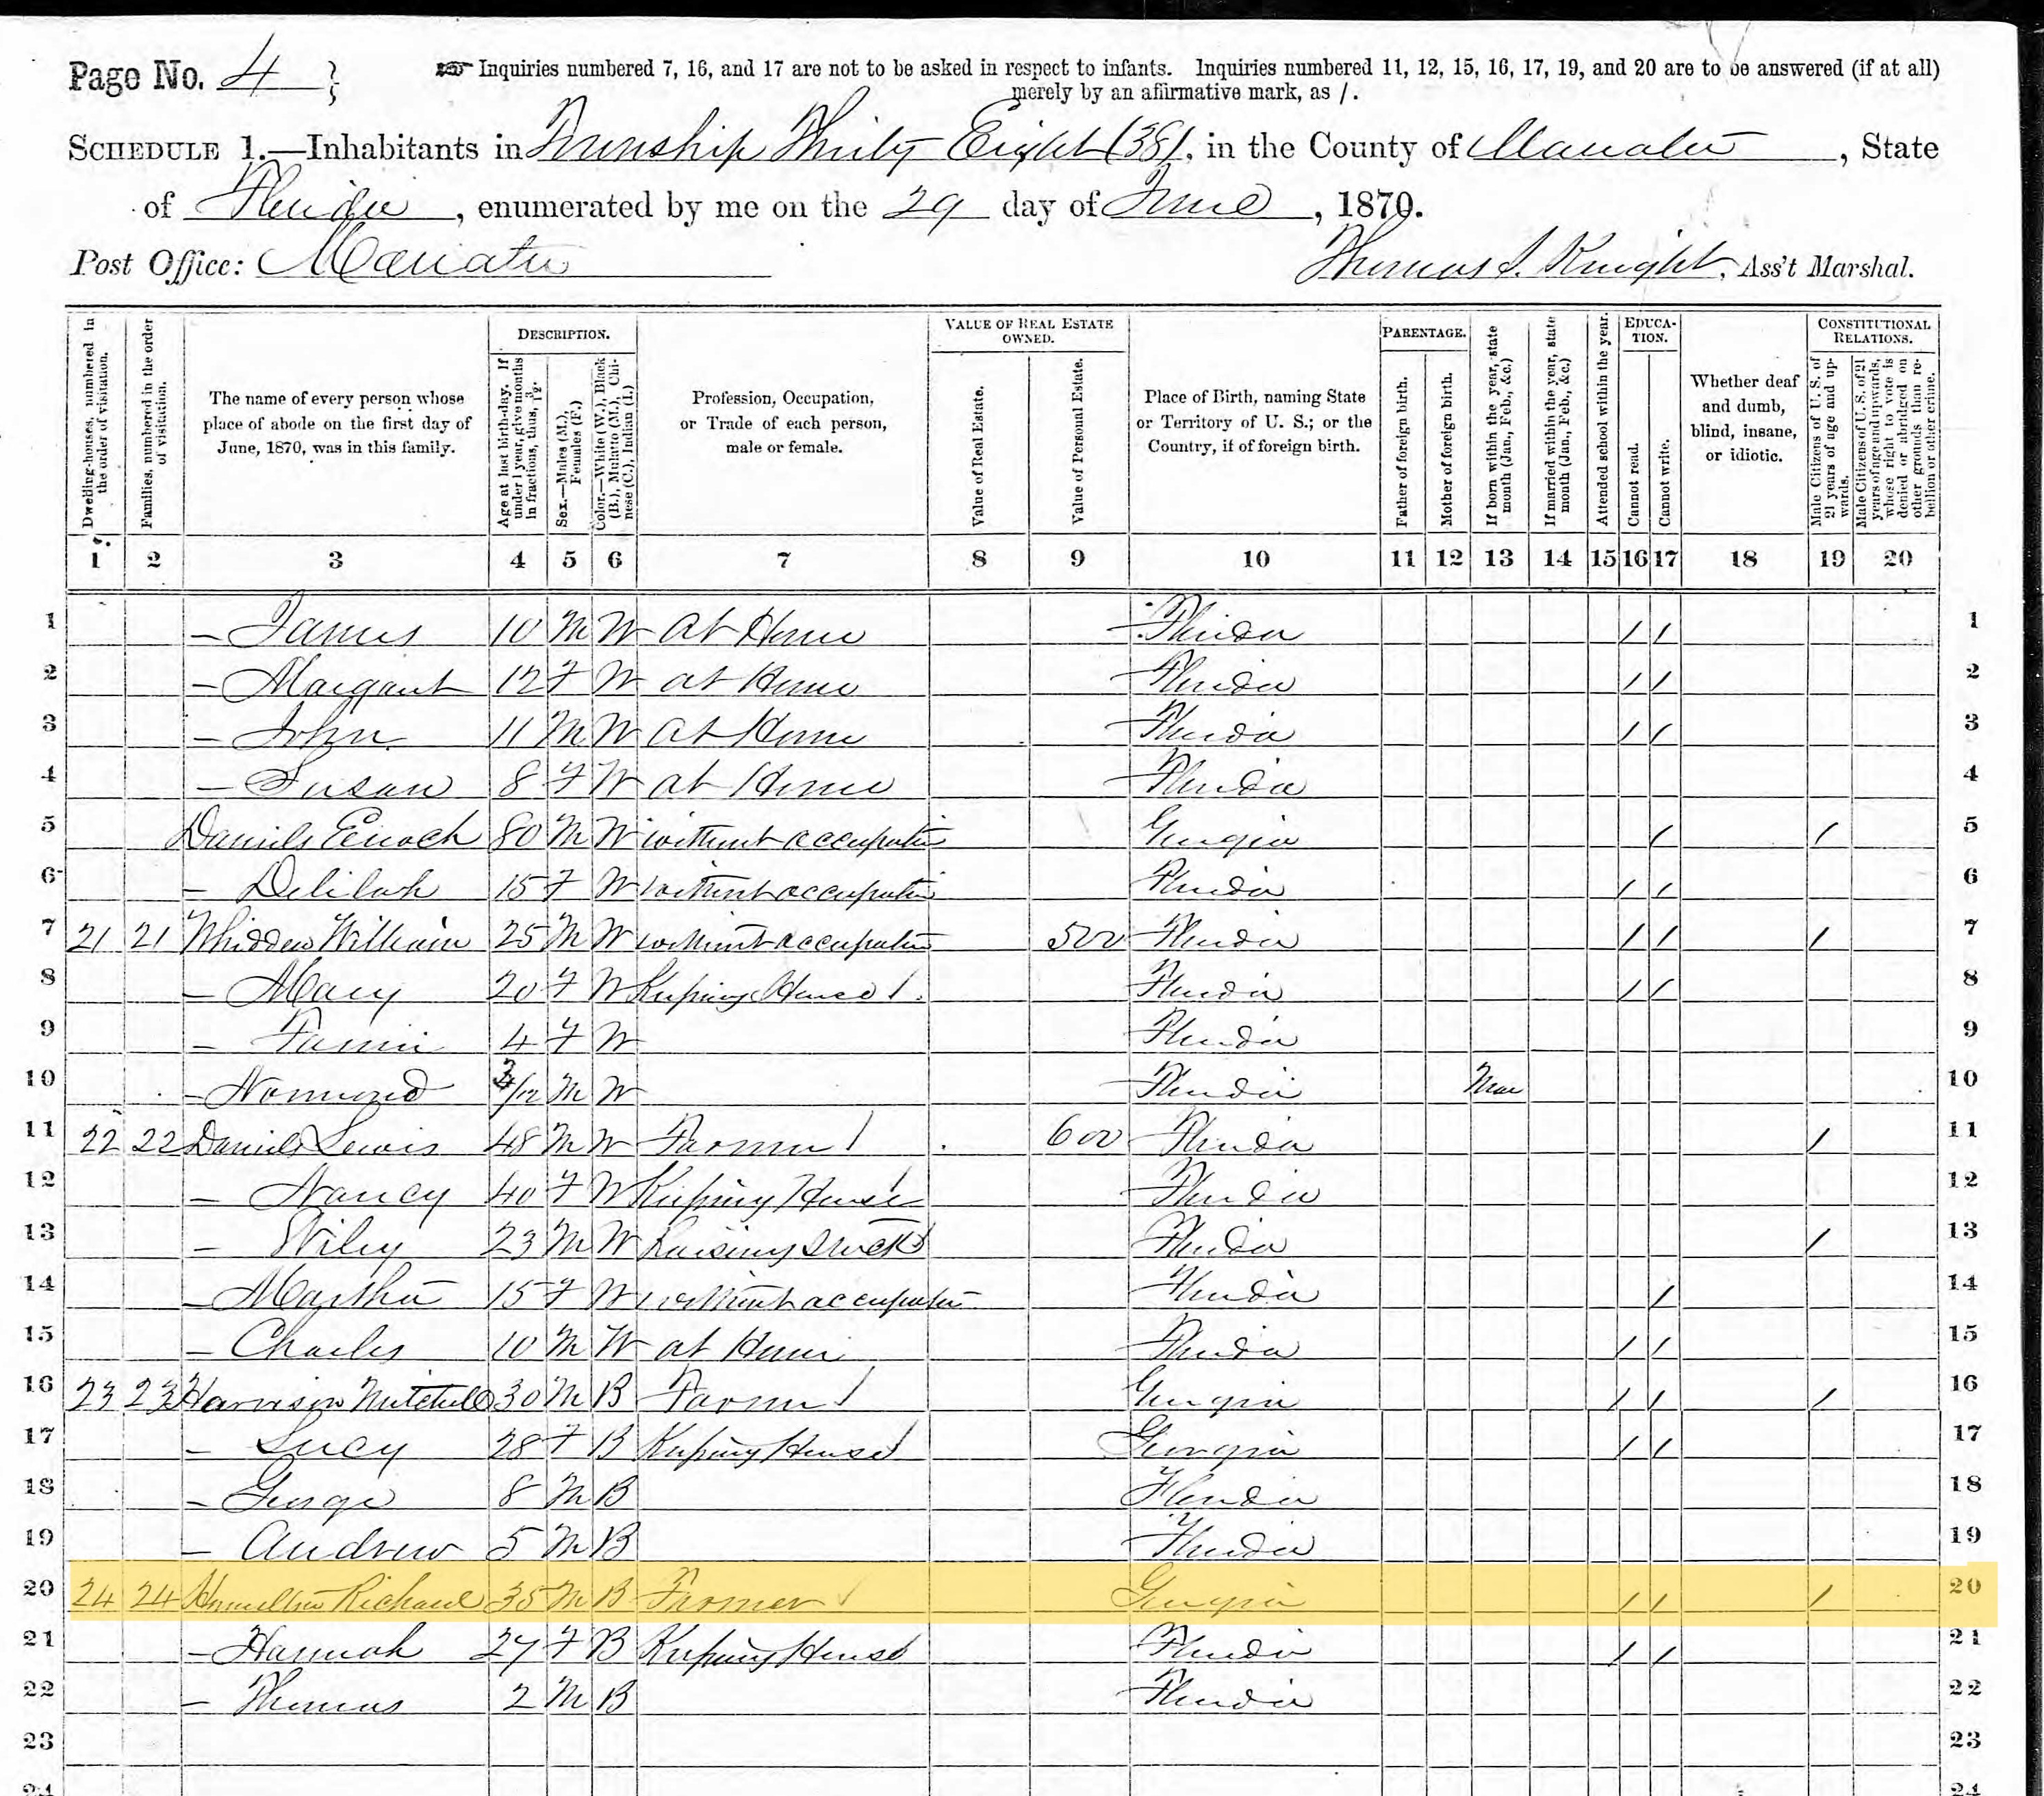 Page No. 4
☞ Inquiries numbered 7, 16, and 17 are not to be asked in respect to infants. Inquiries numbered 11, 12, 15, 16, 17, 19, and 20 are to be answered (if at all)
merely by an affirmative mark, as /.
SCHEDULE 1.—Inhabitants in Township Thirty Eight (38), in the County of Manatee, State
of Florida, enumerated by me on the 29 day of June, 1870.
Post Office: Manatee Thomas S. Knight, Ass't Marshal.
Dwelling-houses, numbered in the order of visitation.
Families, numbered in the order of visitation.
The name of every person whose place of abode on the first day of June, 1870, was in this family.
DESCRIPTION.
Age at last birth-day. If under 1 year, give months in fractions, thus, 3/12.
Sex.—Males (M.), Females (F.)
Color.—White (W.), Black (B.), Mulatto (M.), Chinese (C.), Indian (I.)
Profession, Occupation, or Trade of each person, male or female.
VALUE OF REAL ESTATE OWNED.
Value of Real Estate.
Value of Personal Estate.
Place of Birth, naming State or Territory of U. S.; or the Country, if of foreign birth.
PARENTAGE.
Father of foreign birth.
Mother of foreign birth.
If born within the year, state month (Jan., Feb., &c.)
If married within the year, state month (Jan., Feb., &c.)
Attended school within the year.
EDUCATION.
Cannot read.
Cannot write.
Whether deaf and dumb, blind, insane, or idiotic.
CONSTITUTIONAL RELATIONS.
Male Citizens of U. S. of 21 years of age and upwards.
Male Citizens of U. S. of 21 years of age and upwards, whose right to vote is denied or abridged on other grounds than rebellion or other crime.
1 2 3 4 5 6 7 8 9 10 11 12 13 14 15 16 17 18 19 20
1 — James 10 M W at Home Florida / / 1
2 — Margaret 12 F W at Home Florida / / 2
3 — John 11 M W at Home Florida / / 3
4 — Susan 8 F W at Home Florida 4
5 Daniels Enoch 80 M W without occupation Georgia / / 5
6 — Delilah 15 F W without occupation Florida / / 6
7 21 21 Whidden William 25 M W without occupation 500 Florida / / / 7
8 — Mary 20 F W Keeping House / Florida / / 8
9 — 4 F W Florida 9
10 — 3/12 M W Florida Mar 10
11 22 22 Daniels Lewis 48 M W Farmer / 600 Florida / 11
12 — Nancy 40 F W Keeping House Florida 12
13 — Wiley 23 M W Raising Stock Florida / 13
14 — Martha 15 F W without occupation Florida / 14
15 — Charles 10 M W at Home Florida / / 15
16 23 23 Harrison Mitchell 30 M B Farmer / Georgia / / / 16
17 — Lucy 28 F B Keeping House Georgia / / 17
18 — George 8 M B Florida 18
19 — Andrew 5 M B Florida 19
20 24 24 Hamilton Richard 35 M B Farmer / Georgia / / / 20
21 — Hannah 27 F B Keeping House Florida / / 21
22 — Thomas 2 M B Florida 22
23 23
24 24